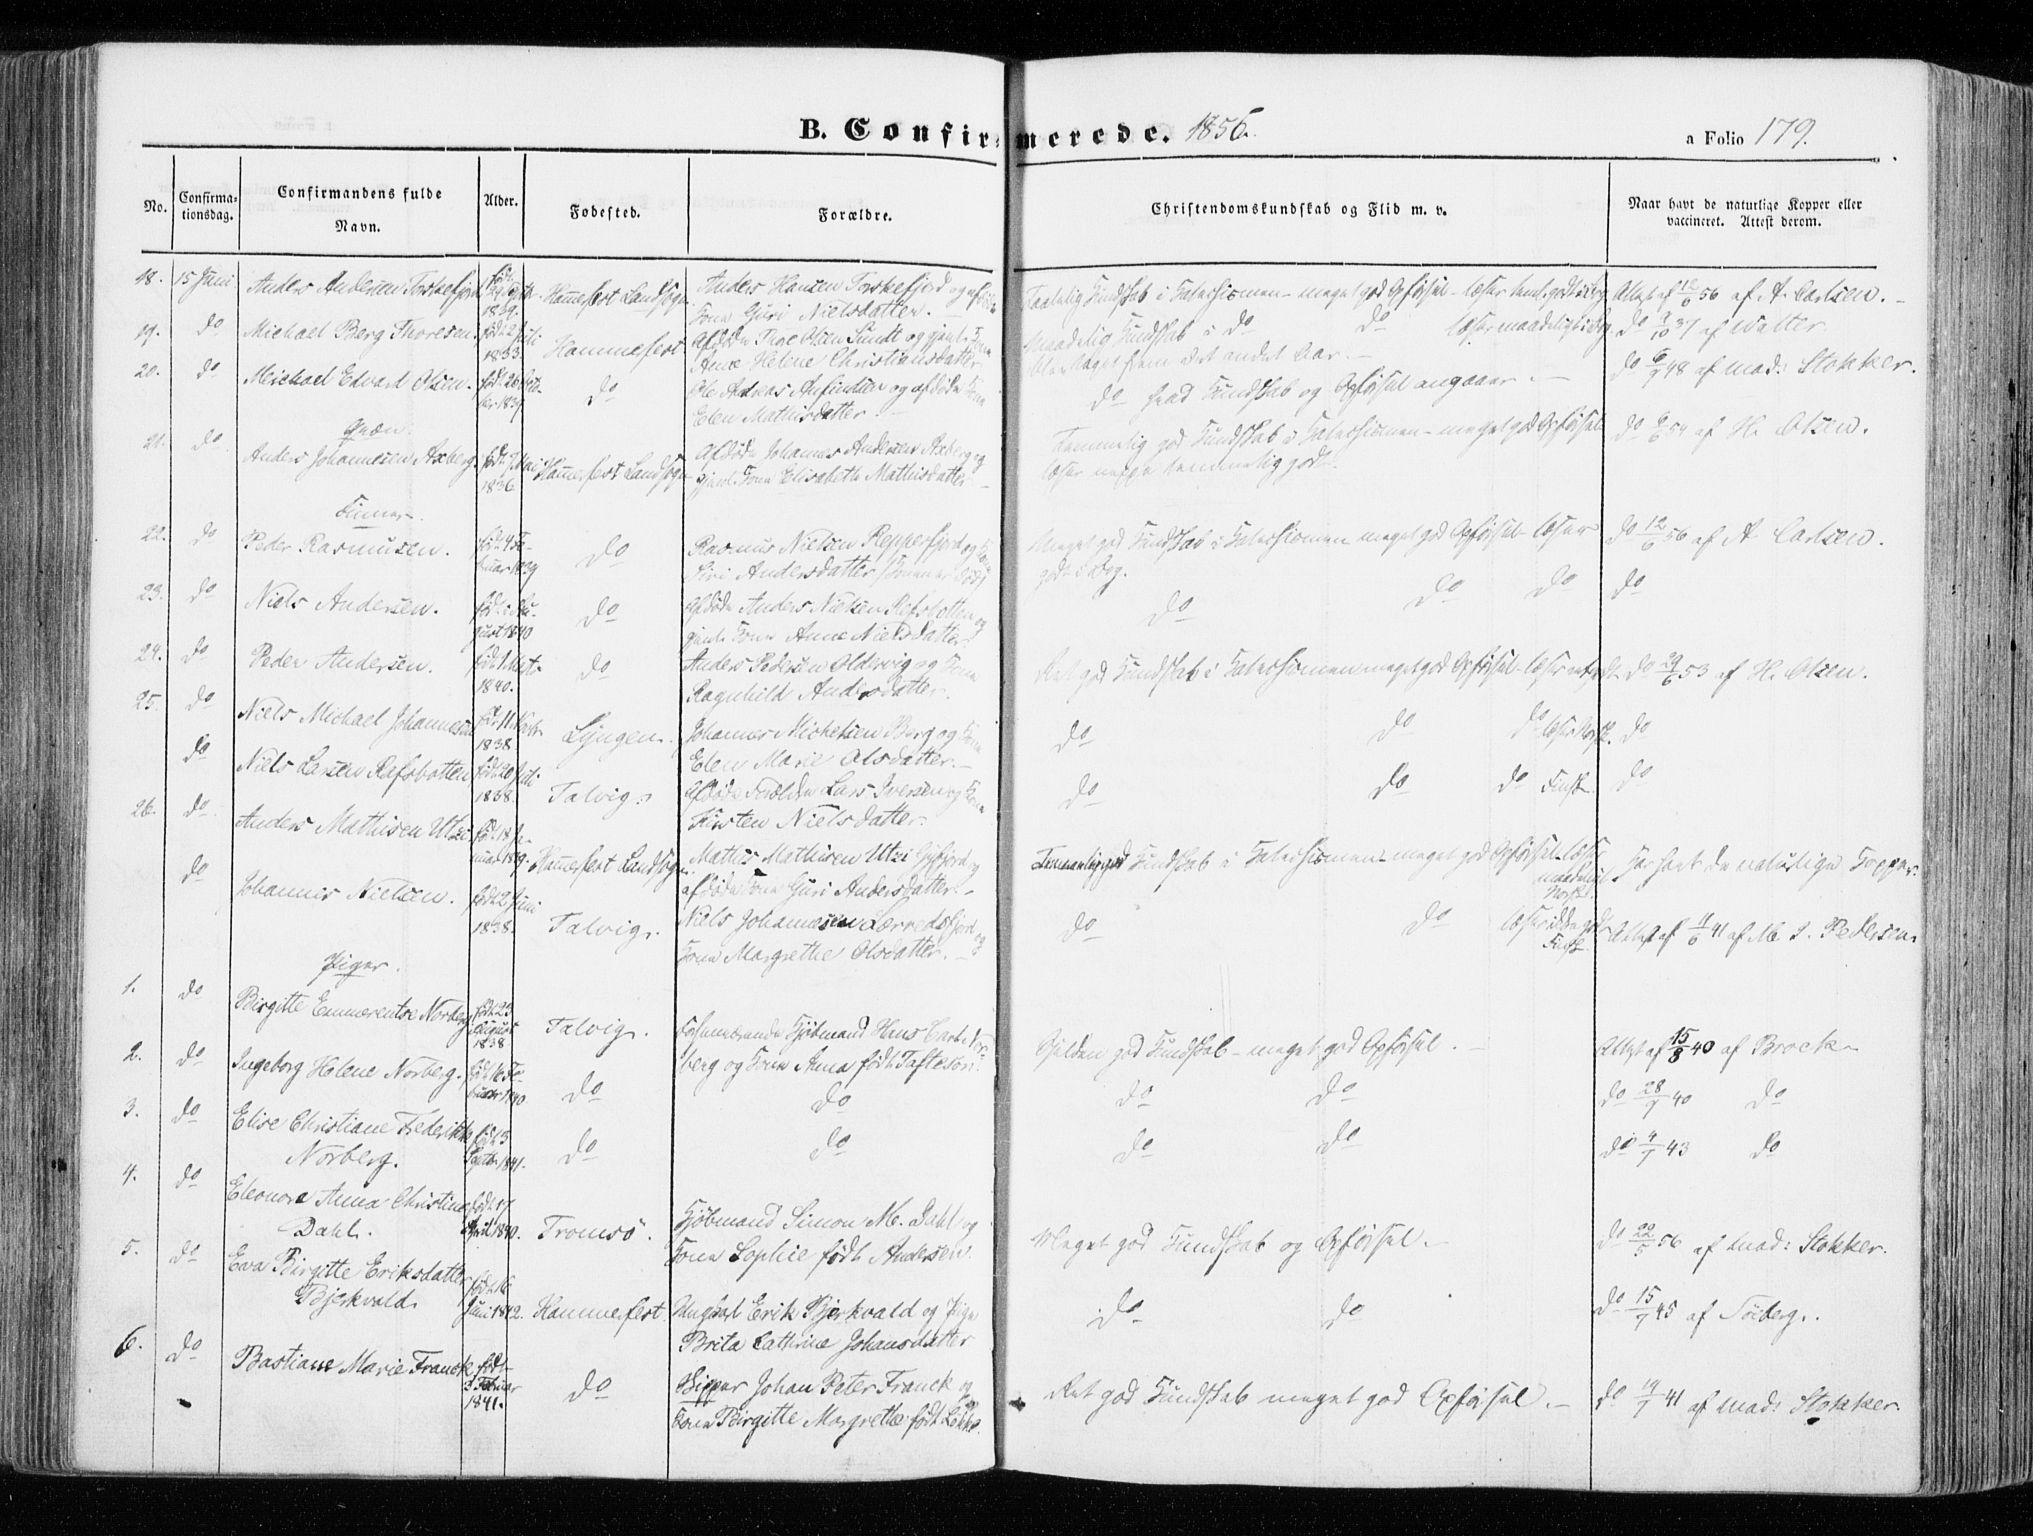 B. Confirmerede. 1856.
a Folio 179.
No. Confirmationsdag. Confirmandens fulde Navn. Alder. Fødested. Forældre. Christendomskundskab og Flid m. v. Naar havt de naturlige Kopper eller vaccineret. Attest derom.
18. 15 Juni Anders Andersen Torskefjord 1839. Hammerfest Landsogn Anders Hansen Torskefjord og afdøde
Kone Guri Nielsdatter. Taalelig Kundskab i Catechismen - meget god Opførsel - Attest af 12/6 56 af A. Carlsen.
19. do Michael Berg Thoresen. født 2 Juli 1833. Hammerfest Afdøde Tore Olsen Sundt og gjenl. Kone
Anne Helene Christiansdatter Maadelig Kundskab i do do læser maadeligt i Bog do 7/10 37 af Walter.
blev taget frem det andet Aar.
20. do Michael Edvard Olsen. 1839. do Ole Andreas Anfindsen og afdøde Kone
Elen Mathisdatter do hvad Kundskab og Opførsel angaaer. do 6/9 48 af mad: Stokker.
Qvæn.
21. do Anders Johannesen Axberg. født 7 Mai 1836 Hammerfest Landsogn Afdøde Johannes Andersen Axberg og
gjenl. Kone Elisabeth Mathisdatter Temmelig god Kundskab i Catechismen - meget god Opførsel
læser neppe temmelig godt. do 6/6 54 af H. Olsen.
Finner.
22. do Peder Rasmusen. født 4 Februar 1839 do Rasmus Nielsen Repperfjord og Kone
Siri Andersdatter (Konen er død) Meget god Kundskab i Catechismen meget god Opførsel læser
godt i Bog. do 12/6 56 af A Carlsen.
23. do Niels Andersen. August 1840 do Afdøde Anders Nielsen Refsbotten og
gjenl. Kone Anne Nielsdatter do do do do
24. do Peder Andersen. 1840. do Anders Pedersen Oldervig og Kone
Ragnhild Andersdatter. Ret god Kundskab i Catechismen meget god Opførsel læser do 29/6 53 af H. Olsen.
25. do Niels Michael Johannesen født 11 1838. Lyngen. Johannes Mickelsen Berg og Kone
Elen Marie Olsdatter. do do do læser Norsk. do
do Niels Larsen Rafsbotten født 20 Juli 1838. Talvig. Afdøde Forældre Lars Iversen og Kone
Kirsten Nielsdatter. do do do Finsk. do
26. do Anders Mathisen Utzi født 18 Januar 1839. Hammerfest Landsogn. Mathis Mathisen Utzi og
afdøde Kone Guri Andersdatter. Temmelig god Kundskab i Catechismen - meget god Opførsel - læser
maadelig Norsk. har havt de naturlige Kopper.
do Johannes Nielsen. født 2 Juni 1838. Talvig. Niels Johannesen Lerredsfjord og
Kone Margrethe Olsdatter. do do læser ikke godt Finsk. Attest af 11/6 41 af M. S. Pedersen.
Piger.
1. do Birgitte Emmerentse Norberg født 23 August 1838 Talvig. Forhenværende Kjøbmand Hans Carl Norberg
og Kone Anna født Tafteson. Sjelden god Kundskab - meget god Opførsel. Attest af 15/8 40 af Brock
2. do Ingeborg Helene Norberg. født 16 Februar 1840 do do do do do 28/7 40 do
3. do Elise Christiane Frederikke Norberg. født 3 Septbr 1841. do do do do do 4/7 43 do
4. do Eleonora Anna Christine Dahl. født 17 April 1840. Tromsö. Kjöbmand Simon M. Dahl og
Kone Sophie født Andersen. Meget god Kundskab og Opførsel. do 22/5 56 af mad: Stokker.
5. do Eva Birgitte Eriksdatter Bjerkvald. født 16 Juni 1842. Hammerfest. Ungkarl Erik Bjerkvald og Pige
Brita Cathrine Johansdatter do do do 15/7 45 af Soeberg.
6. do Bastiane Marie Franck født 3 Februar 1841. do Skipper Johan Peter Franck og
Kone Birgitte Margrethe født Lökke. Ret god Kundskab meget god Opførsel. do 19/7 41 af mad: Stokker